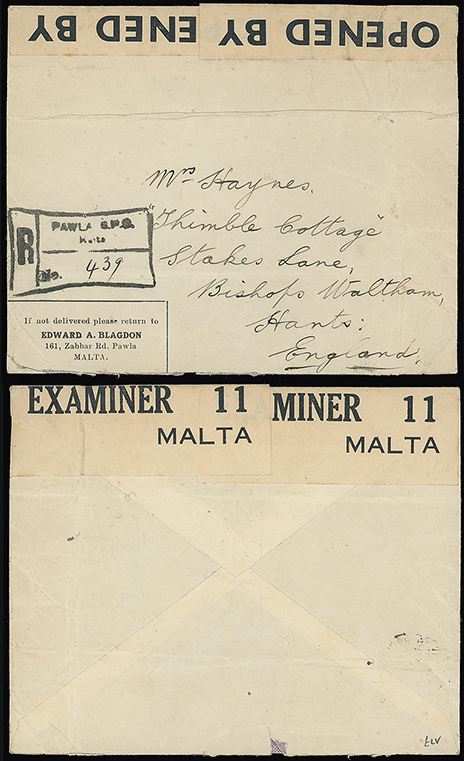 ENED BY OPENED BY
Mrs Haynes.
"Thimble Cottage"
Stakes Lane,
Bishops Waltham,
Hants:
England,
R
PAWLA G.P.O.
Malta
No. 439
If not delivered please return to
EDWARD A. BLAGDON
161, Zabbar Rd. Pawla
MALTA.
EXAMINER 11 MINER 11
MALTA MALTA